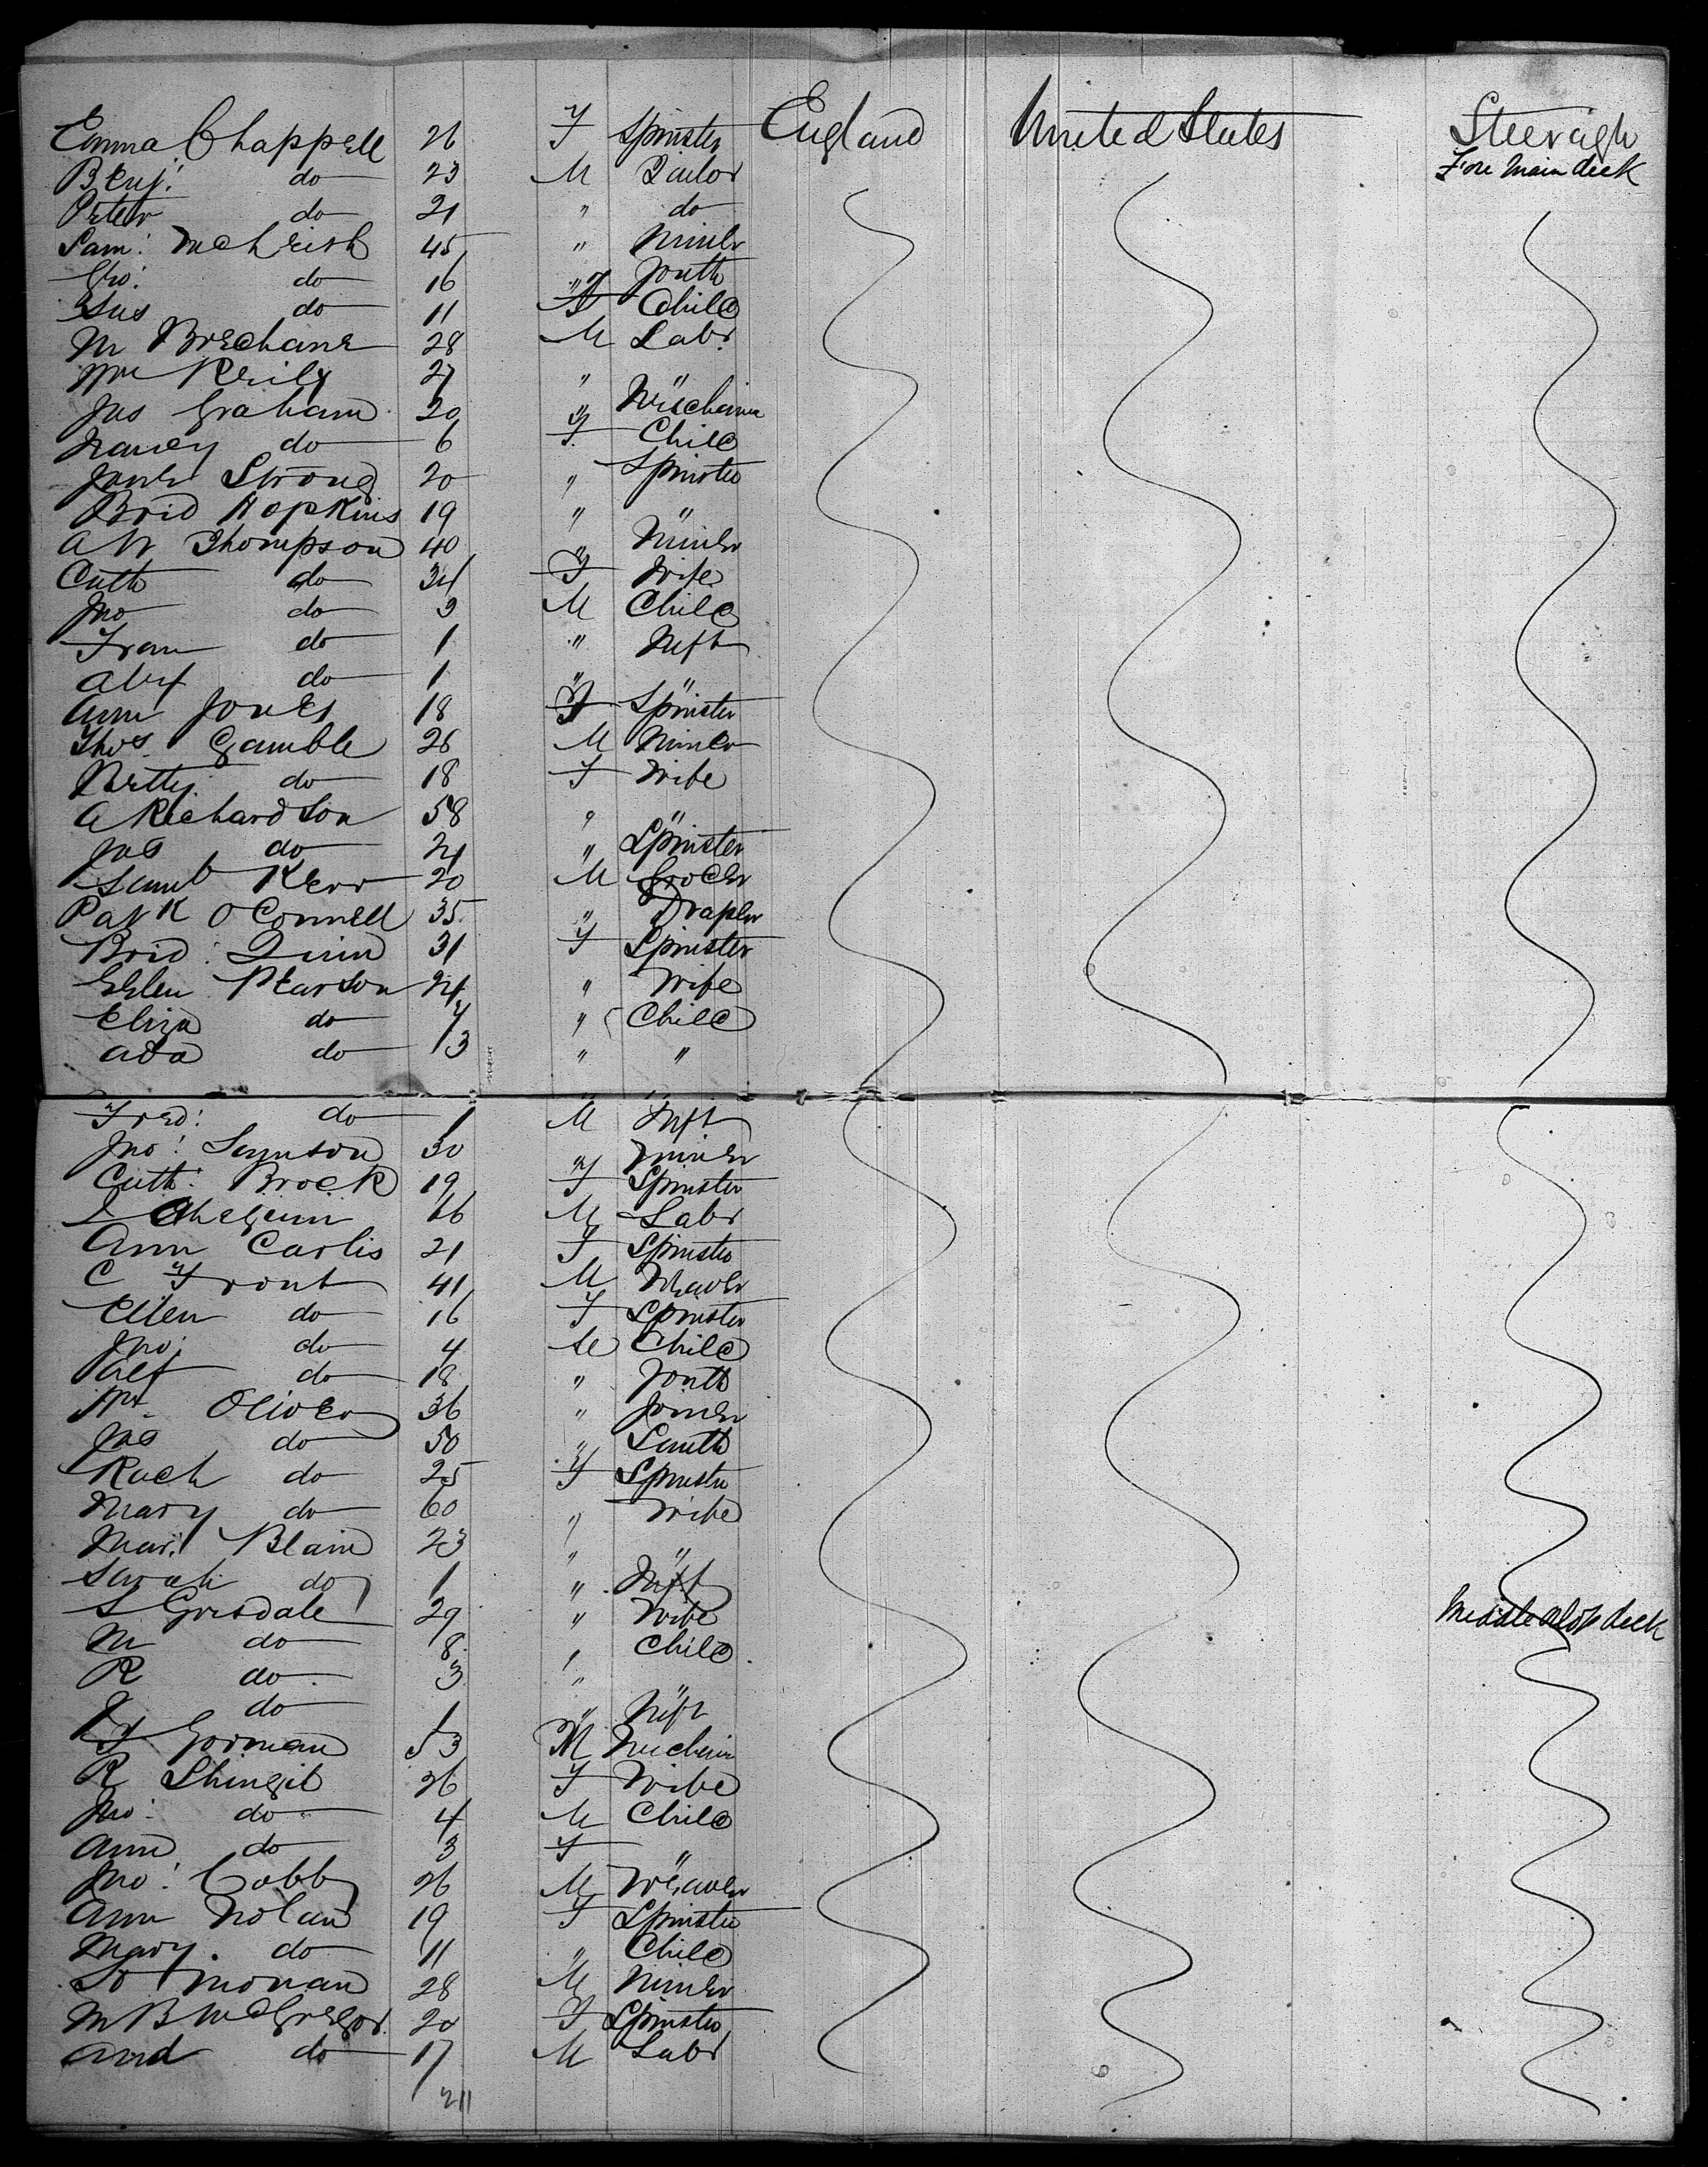 Emma Chappell 26 F Spinster England United States Steeragh
Benj: do 23 M Tailor Fore Main deck
Peter do 21 " do
Sam: McLeish 45 " Miner
Geo: do 16 " Youth
Sus do 11 F Child
M Brechane 28 M Labr
Wm Reily 27 " "
Jas Graham 20 " Mechanic
Nancy do 6 F Child
Jane Strong 20 " Spinster
Brid Hopkins 19 " "
A W Thompson 40 " Miner
Cath do 34 F Wife
Jno do 3 M Child
Fran do 1 " Inft
Alex do 1 " "
Ann Jones 18 F Spinster
Thos Gamble 26 M Miner
Betty do 18 F Wife
A Richardson 58 " "
Jas do 21 " Spinster
Saml Kerr 20 M Grocer
Patk O Connell 35 " Draper
Brid: Quinn 31 F Spinster
Ellen Pearson 24 " Wife
Eliza do 7 " Child
Ada do 3 " "
Fred: do 1 M Inft
Jno: 30 " Miner
Cath: Brock 19 F Spinster
16 M Labr
Ann Carlis 21 F Spinster
C Front 41 M Weaver
Ellen do 16 F Spinster
Jno: do 4 M Child
Alf do 18 " Youth
Wm Oliver 36 " Joiner
Jas do 50 " Smith
Rach do 25 F Spinster
Mary do 60 " Wife
Mar: Blain 23 " "
Sarah do 1 " Inft
S Grisdale 29 " Wife Middle Orlop deck
M do 8 " Child
R do 3 " "
do 1 " Inft
Gorman 53 M Mechanic
R Shingil 26 F Wife
Jno: do 4 M Child
Ann do 3 F "
Jno: Cobb 26 M Weaver
Ann Nolan 19 F Spinster
Mary. do 11 " Child
Monan 28 M Miner
M B McGregor 20 F Spinster
And do 17 M Labr
211